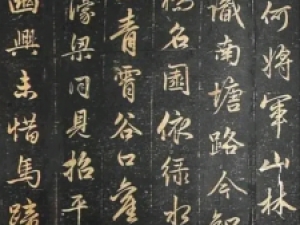 何將軍山林
識南塘路今知
橋名園依綠水
青霄谷口舊
濠梁同見招平
幽興未惜馬蹄